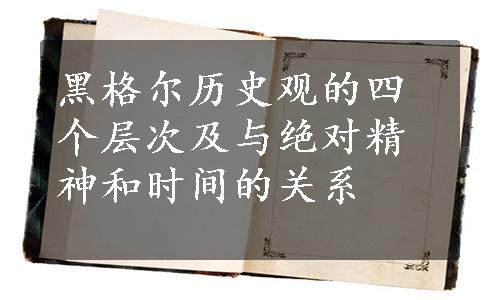 黑格尔历史观的四
个层次及与绝对精
神和时间的关系